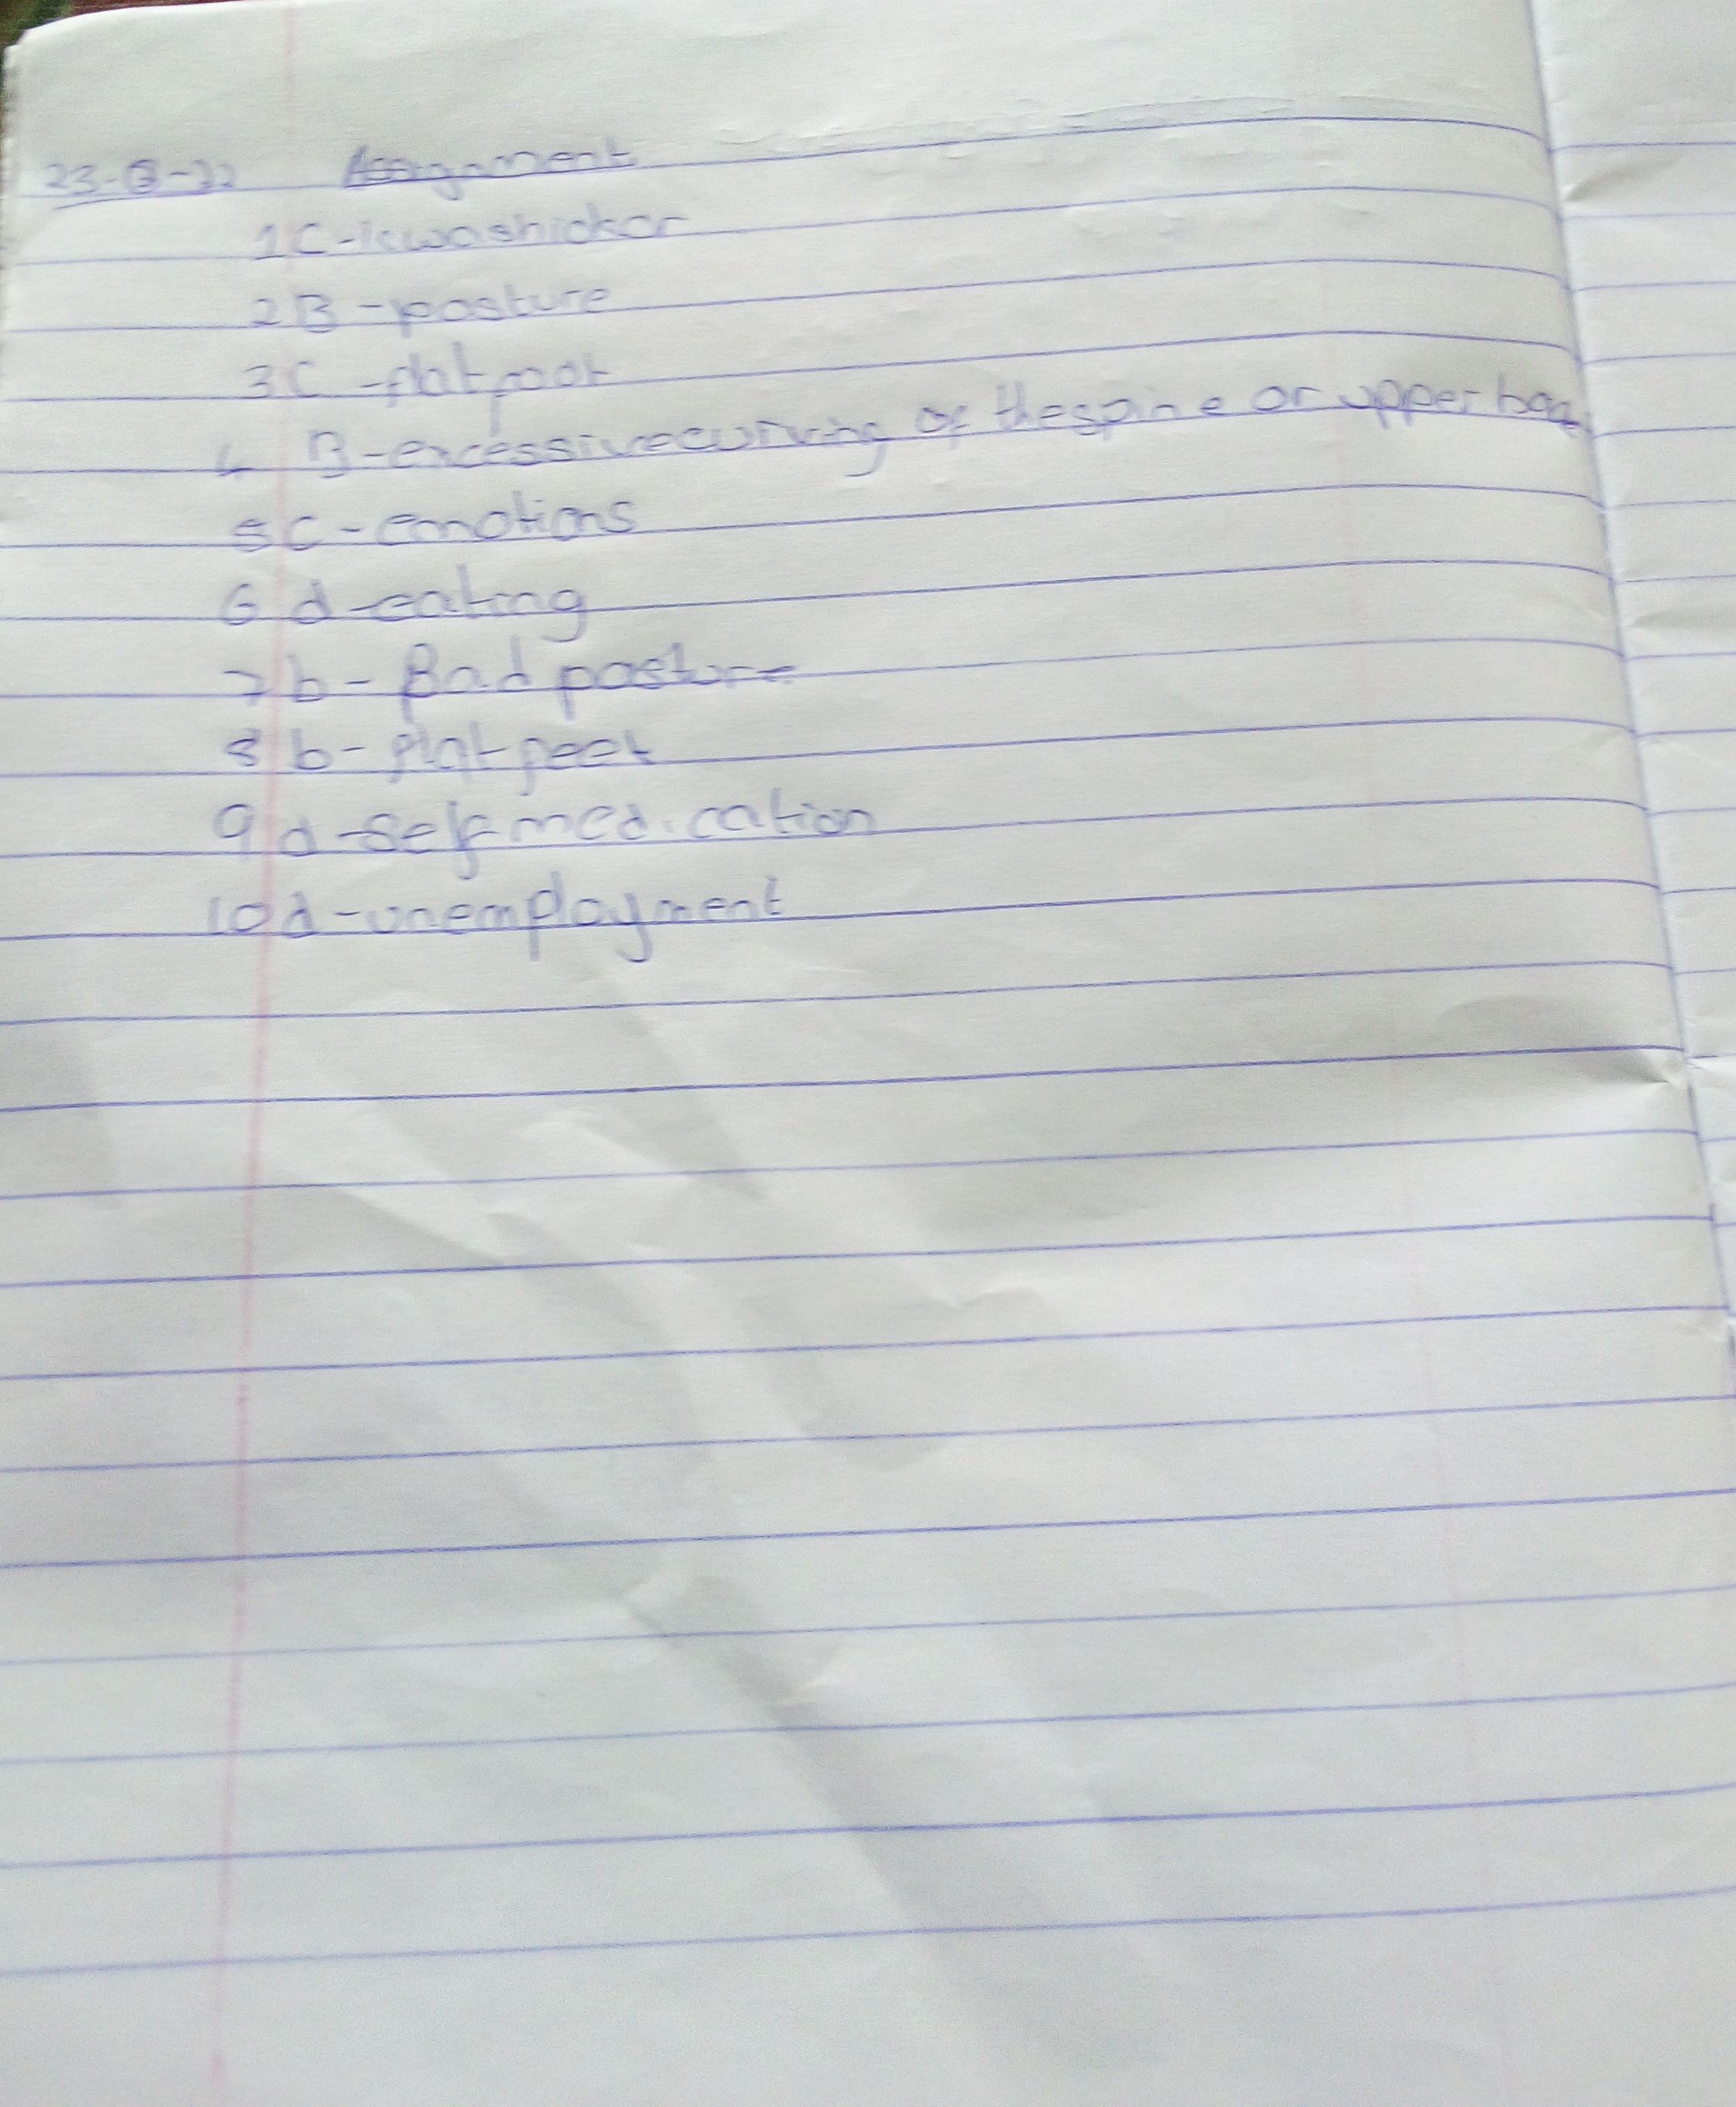 23-8-22 Assignment
1C-kwashickor
2B-posture
3C-flat foot
4 B-excessive curving of the spine or upper
5C-emotions
6 d-eating
7 b-Bad posture
8 b-flat feet
9 d-self medication
10 d-unemployment